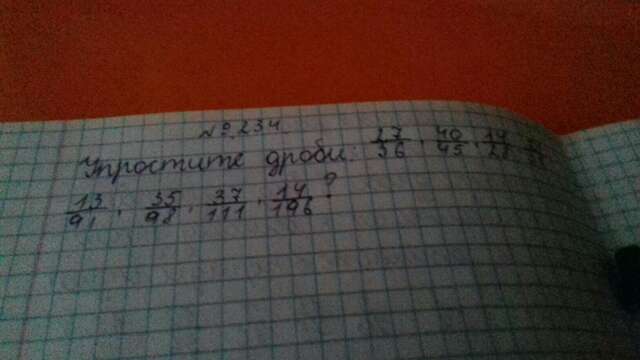 № 234
Упростите дроби: 27/36, 40/45, 14/21,
13/91, 35/98, 37/111, 14/196?